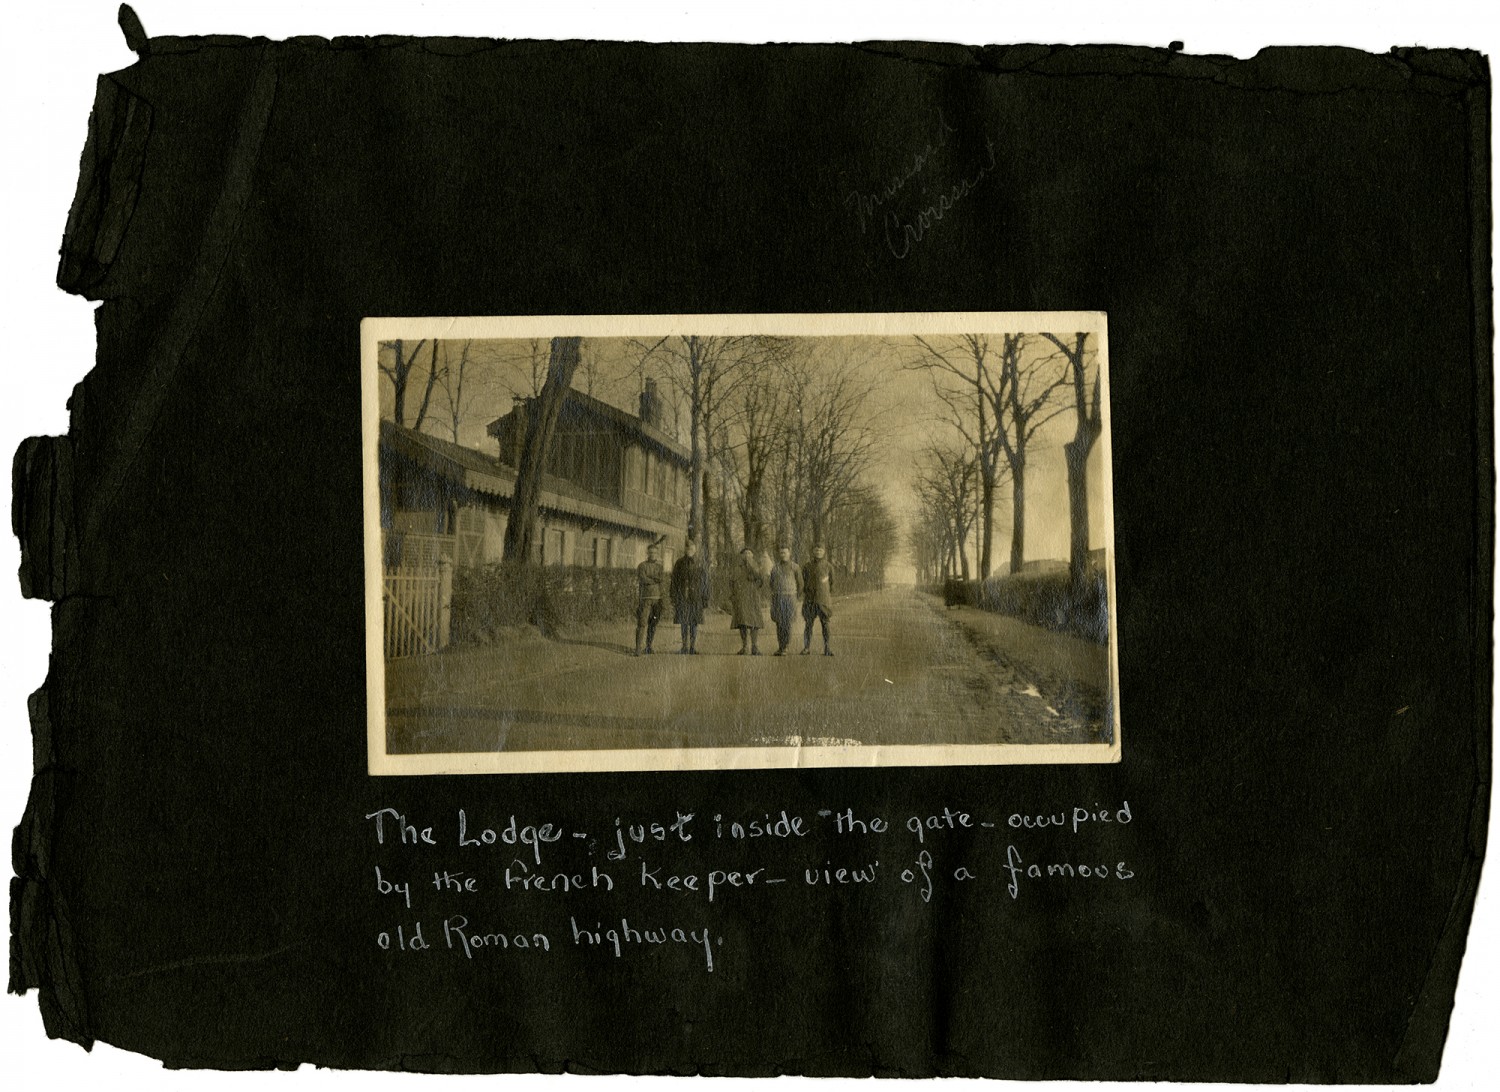 Croissant
The Lodge - just inside the gate - occupied
by the French Keeper - view of a famous
old Roman highway.